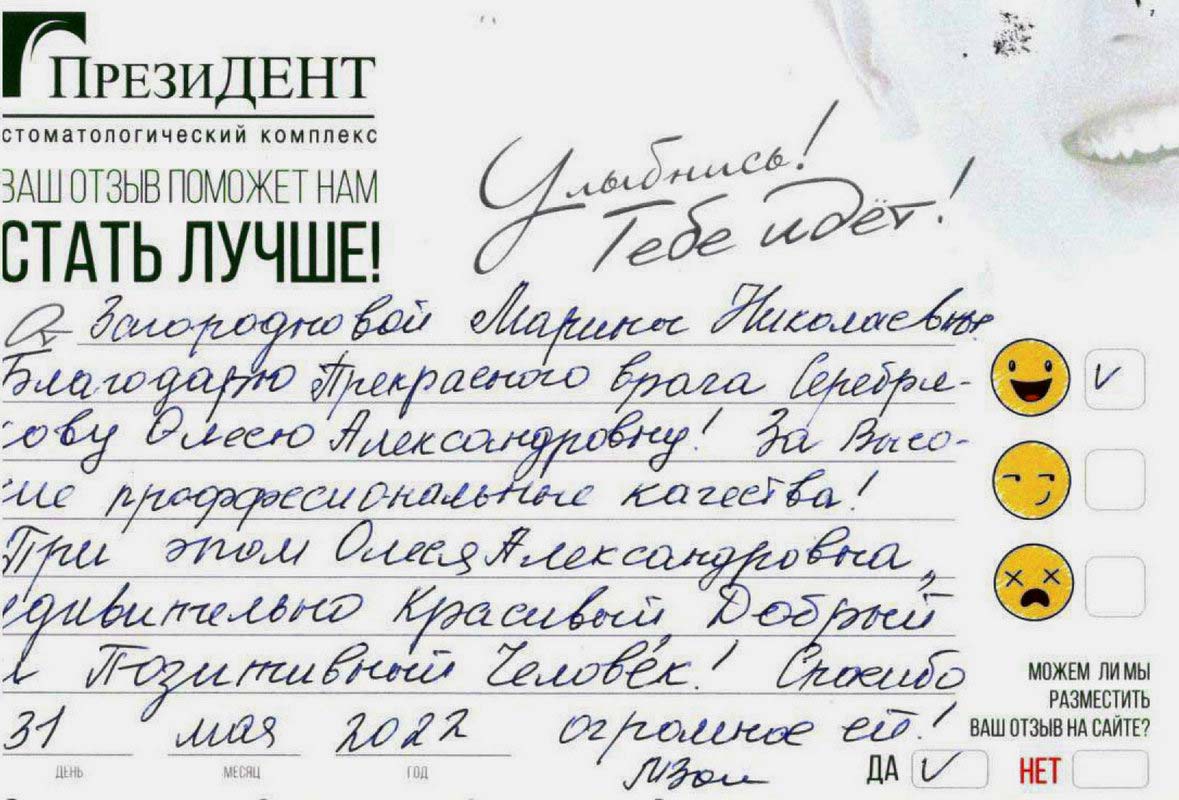 ПРЕЗИДЕНТ
СТОМАТОЛОГИЧЕСКИЙ КОМПЛЕКС
ВАШ ОТЗЫВ ПОМОЖЕТ НАМ
СТАТЬ ЛУЧШЕ!
Улыбнись!
Тебе идёт!
От Загородновой Марины Николаевны
Благодарю Прекрасного врача Серебря-
кову Олесю Александровну! За Высо-
кие проффесиональные качества!
При этом Олеся Александровна,
удивительно Красивый, Добрый
и Позитивный Человек! Спасибо
31 мая 2022 огромное ей!
ДЕНЬ МЕСЯЦ ГОД
МОЖЕМ ЛИ МЫ
РАЗМЕСТИТЬ
ВАШ ОТЗЫВ НА САЙТЕ?
ДА НЕТ